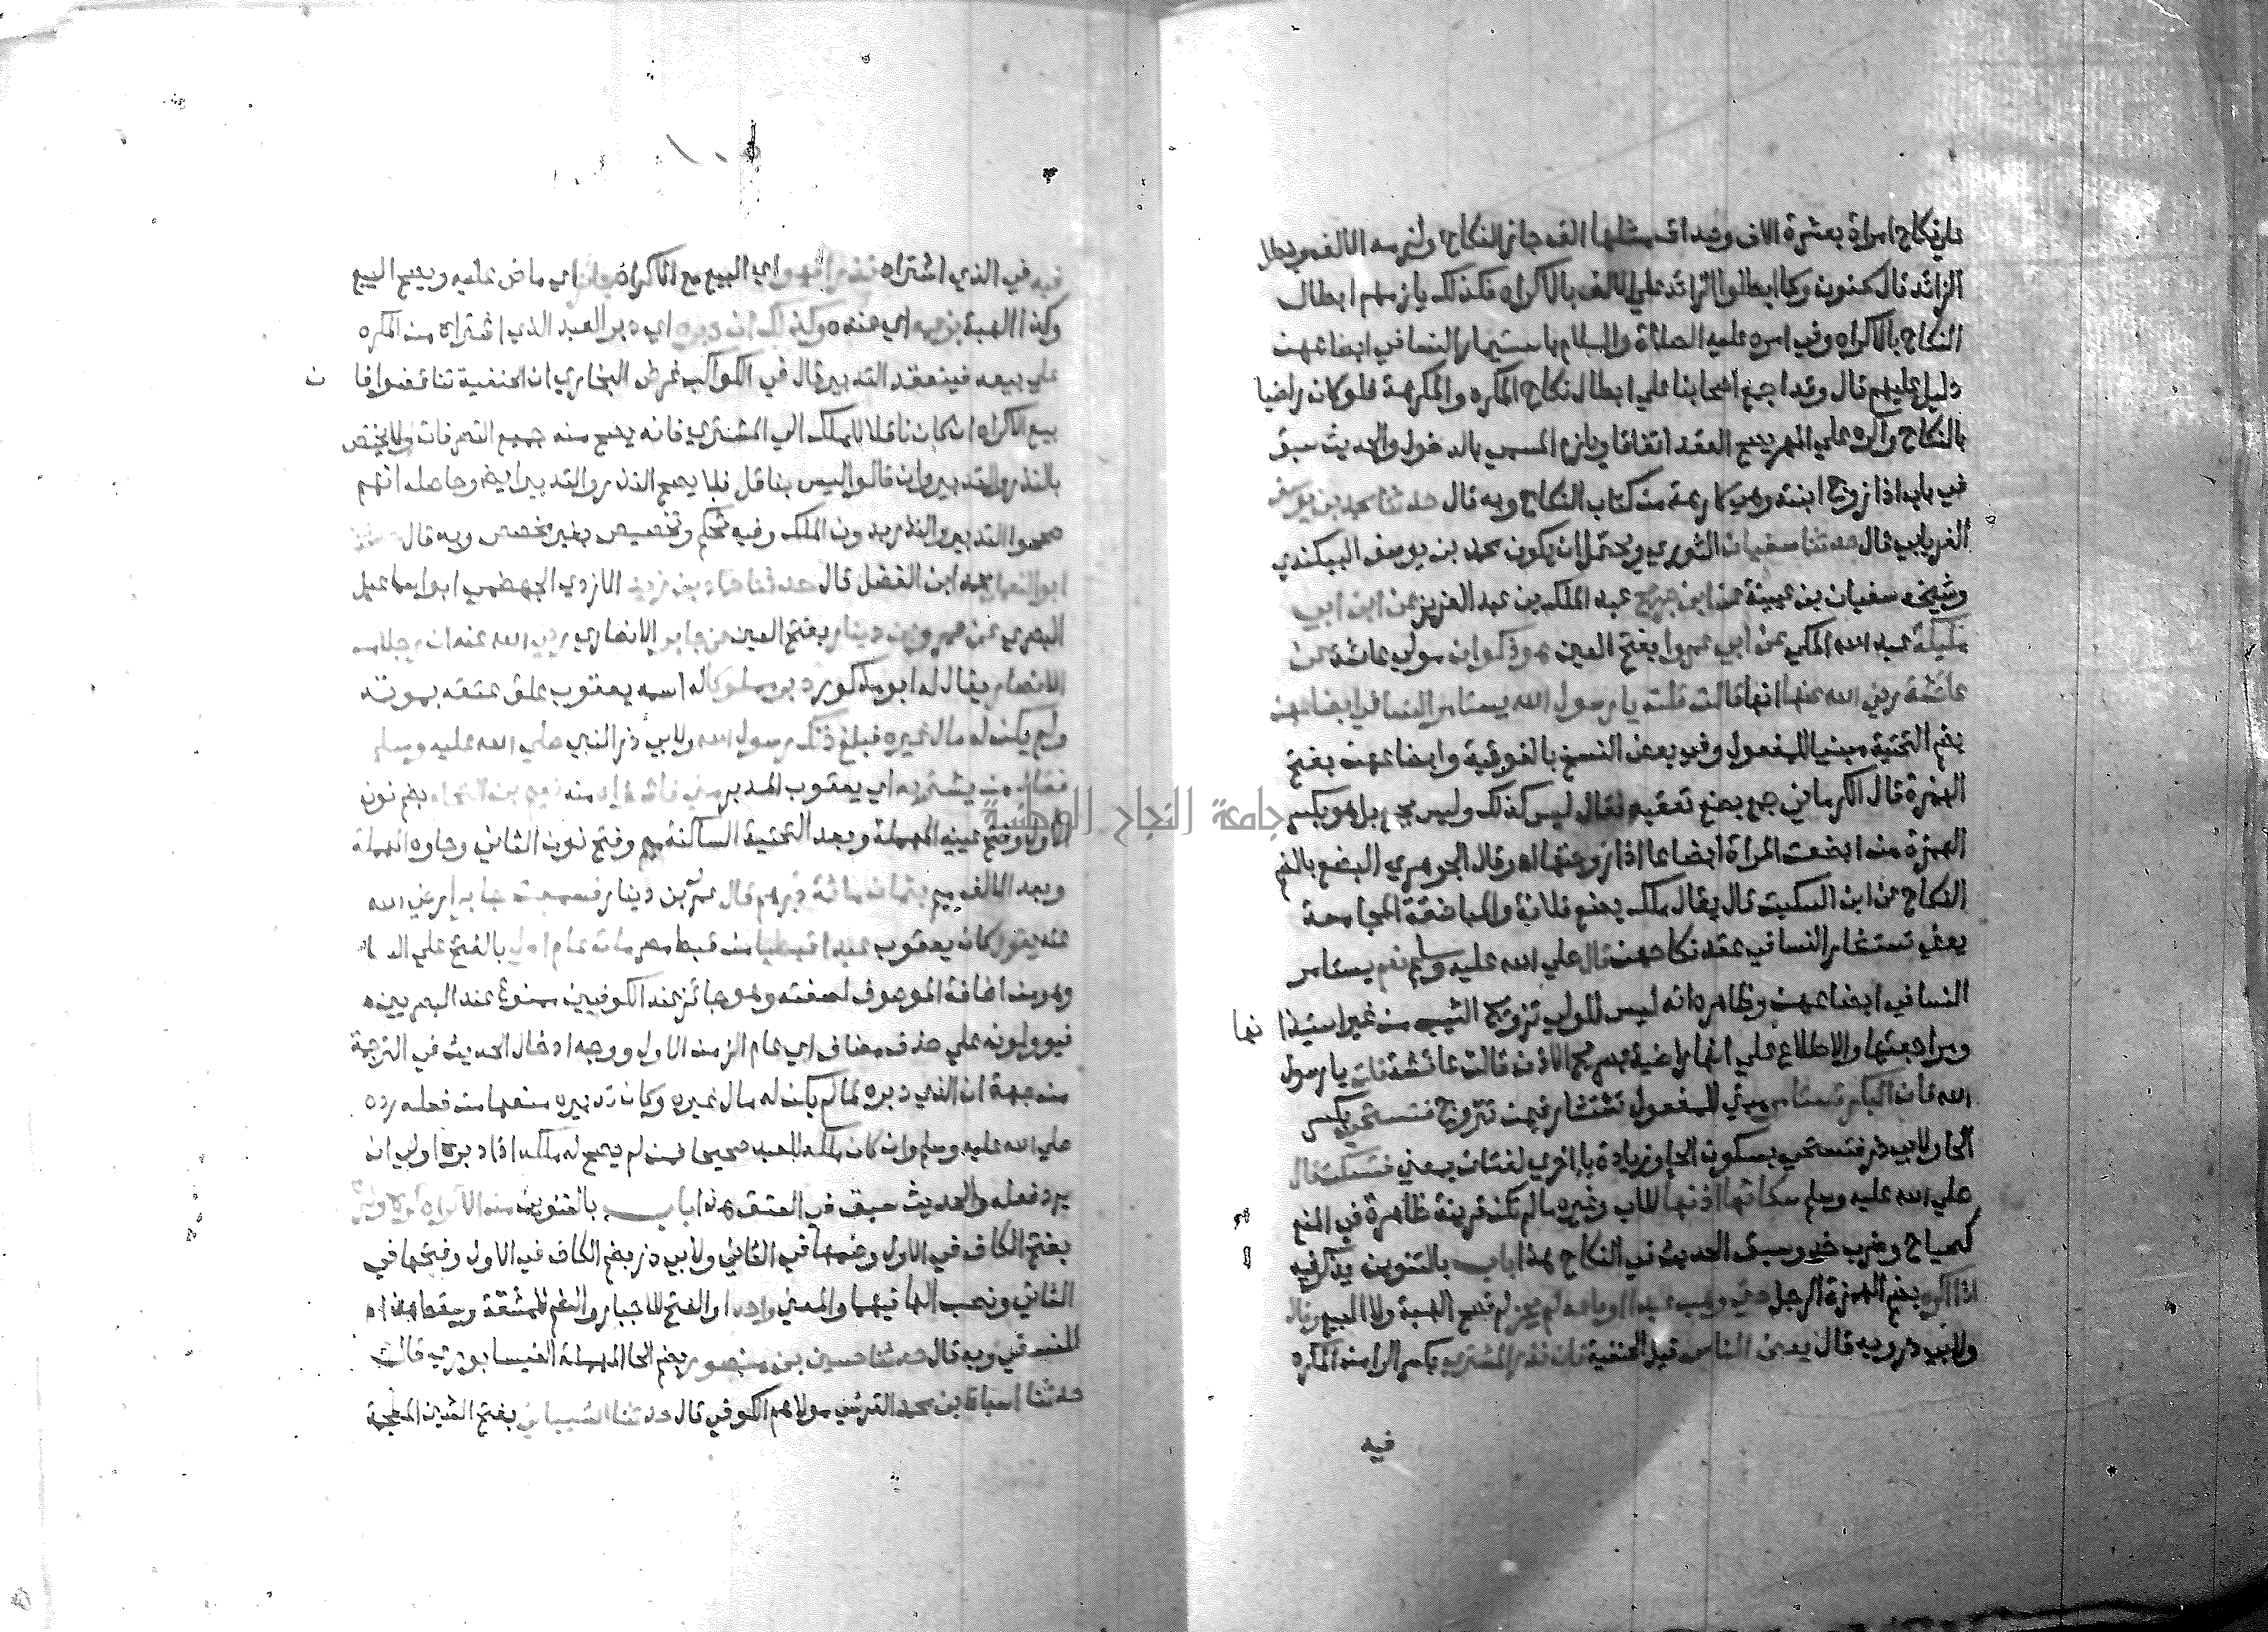 علي نكاح امراة بعشرة الاف وصداق مثلها الف جاز النكاح ولزمه الالف وبطل
الزائد قال سحنون وكما ابطلوا الزائد علي الالف بالاكراه فكذلك يلزمهم ابطال
النكاح بالاكراه وفي امره عليه الصلاة والسلام باستيمار النسا في ابضاعهن
دليل عليهم قال وقد اجمع اصحابنا علي ابطال نكاح المكره والمكرهة فلو كان راضيا
بالنكاح واكره علي المهر يصح العقد اتفاقا ويلزم المسمي بالدخول والحديث سبق
في باب اذا زوج ابنته وهي كارهة من كتاب النكاح وبه قال حدثنا محمد بن يوسف
الفريابي قال حدثنا سفيان الثوري ويحتمل ان يكون محمد بن يوسف البيكندي
وشيخه سفيان بن عيينة عن ابن جريج عبد الملك بن عبد العزيز عن ابن ابي
مليكة عبد الله المكي عن ابي عمرو بفتح العين هو ذكوان مولي عائشة عن
عائشة رضي الله عنها انها قالت قلت يا رسول الله يستامر النسا في ابضاعهن
بضم التحتية مبنيا للمفعول وفي بعض النسخ بالفوقية وابضاعهن بفتح
الهمزة قال الكرماني جمع بضع تعقبه فقال ليس كذلك وليس بجمع بل هو بكسر
الهمزة من ابضعت المراة ابضاعا اذا زوجتها اه وقال الجوهري البضع بالضم
النكاح عن ابن السكيت قال يقال ملك بضع فلانة والمباضعة المجامعة
يعني تستشار النسا في عقد نكاحهن قال صلي الله عليه وسلم نعم يستامر
النسا في ابضاعهن وظاهره انه ليس للولي تزويج الثيب من غير استيذا نها
ومراجعتها والاطلاع علي انها راضية بصريح الاذن قالت عائشة قلت يا رسول
الله فان البكر تستامر مبني للمفعول تشتشار فيمن تتزوج فتستحيي بكسر
الحا ولابي ذر فتستحي بسكون الحا وزيادة يا اخري لغتان بمعني فتسكت قال
صلي الله عليه وسلم سكاتها اذنها للاب وغيره ما لم تكن قرينة ظاهرة في المنع
كصياح وضرب خد وسبق الحديث في النكاح هذا باب بالتنوين يذكر فيه
اذا اكره بضم الهمزة الرجل حتي وهب عبدا او باعه لم يجز لم تصح الهبة ولا البيع وقال
ولابي ذر وبه قال بعض الناس قيل الحنفية فان نذر المشتري بكسر الرا من المكره
فيه
فيه في الذي اشتراه نذرا فهو اي البيع مع الاكراه جائز اي ماض عليه ويصح البيع
وكذا الهبة بزعمه اي عنده وكذلك ان دبره اي دبر العبد الذي اشتراه من المكره
علي بيعه فينعقد التدبير قال في الكواكب غرض البخاري ان الحنفية تناقضوا فا ن
بيع الاكراه ان كان ناقلا للملك الي المشتري فانه يصح منه جميع التصرفات ولا يختص
بالنذر والتدبير وان قالوا ليس بناقل فلا يصح النذر والتدبير ايضا وحاصله انهم
صححوا التدبير والنذر بدون الملك وفيه تحكم وتخصيص بغير مخصص وبه قال حدثنا
ابو النعمان محمد ابن الفضل قال حدثنا حماد بن زيد الازدي الجهضمي ابو اسماعيل
البصري عن عمرو بن دينار بفتح العين عن جابر الانصاري رضي الله عنه ان رجلا من
الانصار يقال له ابو مذكور دبر مملوكا له اسمه يعقوب علق عتقه بموته
ولم يكن له مال غيره فبلغ ذلك رسول الله ولابي ذر النبي صلي الله عليه وسلم
فقال من يشتريه اي يعقوب المدبر مني فاشتراه منه نعيم بن النحام بضم نون
الاول وفتح عينه المهملة وبعد التحتية الساكنة ميم وفتح نون الثاني وحاوه المهملة
وبعد الالف ميم بثمان مائة درهم قال عمرو بن دينار فسمعت جابرا رضي الله
عنه يقول كان يعقوب عبدا قبطيا من قبط مصر مات عام اول بالفتح علي البنا
وهو من اضافة الموصوف لصفته وهو جائز عند الكوفيين ممنوع عند البصريين
فيوولونه علي حذف مضاف اي عام الزمن الاول ووجه ادخال الحديث في الترجمة
من جهة ان الذي دبره لما لم يكن له مال غيره وكان تدبيره سفها من فعله رده
صلي الله عليه وسلم وان كان ملكه للعبد صحيحا فمن لم يصح له ملكه اذا دبره اولي ان
يرد فعله والحديث سبق في العتق هذا باب بالتنوين من الاكراه كره وكره
بفتح الكاف في الاول وضمها في الثاني ولابي ذر بضم الكاف في الاول وفتحها في
الثاني ونصب الها فيهما والمعني واحد او الفتح للاجبار والضم للمشقة وسقط هذا
للنسفي وبه قال حدثنا حسين بن منصور بضم الحا المهملة النيسابوري قال
حدثنا اسباط بن محمد القرشي مولاهم الكوفي قال حدثنا الشيباني بفتح الشين المعجمة
جامعة النجاح الوطنية